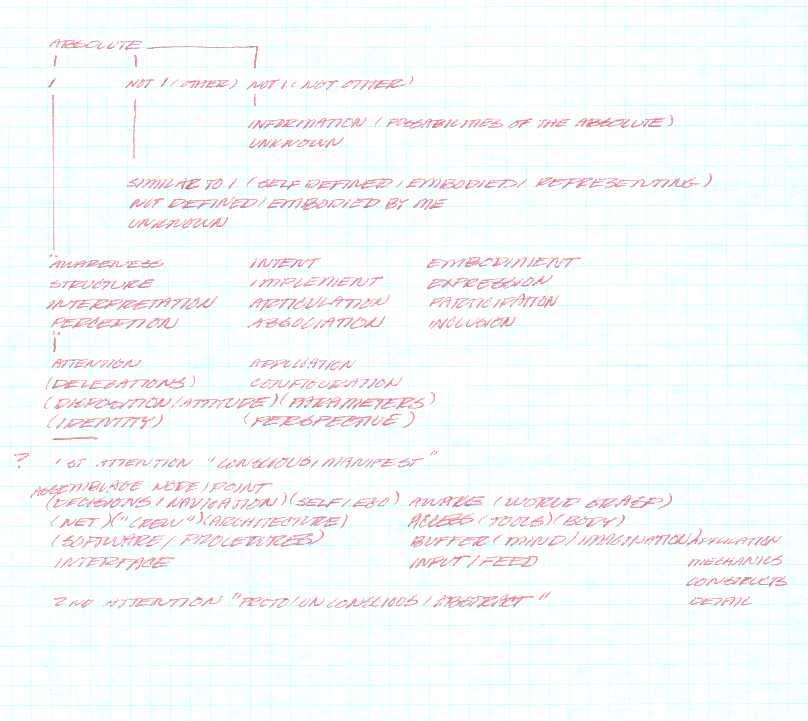 ABSOLUTE
I NOT I (OTHER) NOT I (NOT OTHER)
INFORMATION (POSSABILITIES OF THE ABSOLUTE)
UNKNOWN
SIMILAR TO I (SELF DEFINED / EMBODIED / REPRESENTING)
NOT DEFINED / EMBODIED BY ME
UNKNOWN
AWARENESS INTENT EMBODIMENT
STRUCTURE IMPLEMENT EXPRESSION
INTERPRETATION ARTICULATION PARTICIPATION
PERCEPTION ASSOCIATION INCLUSION
ATTENTION APPLICATION
(DELEGATIONS) CONFIGURATION
(DISPOSITION / ATTITUDE) (PARAMETERS)
(IDENTITY) (PERSPECTIVE)
? 1ST ATTENTION "CONSCIOUS / MANIFEST"
ASSEMBLAGE NODE / POINT
(DECISIONS / NAVIGATION) (SELF / EGO) AWARE (WORLD GRASP)
(NET) ("CREW") (ARCHITECTURE) ACCESS (TOOLS) (BODY)
(SOFTWARE / PROCEDURES) BUFFER (MIND / IMAGINATION) APPLICATION
INTERFACE INPUT / FEED MECHANICS
CONSTRUCTS
2ND ATTENTION "PROTO / UNCONSCIOUS / ABSTRACT" DETAIL